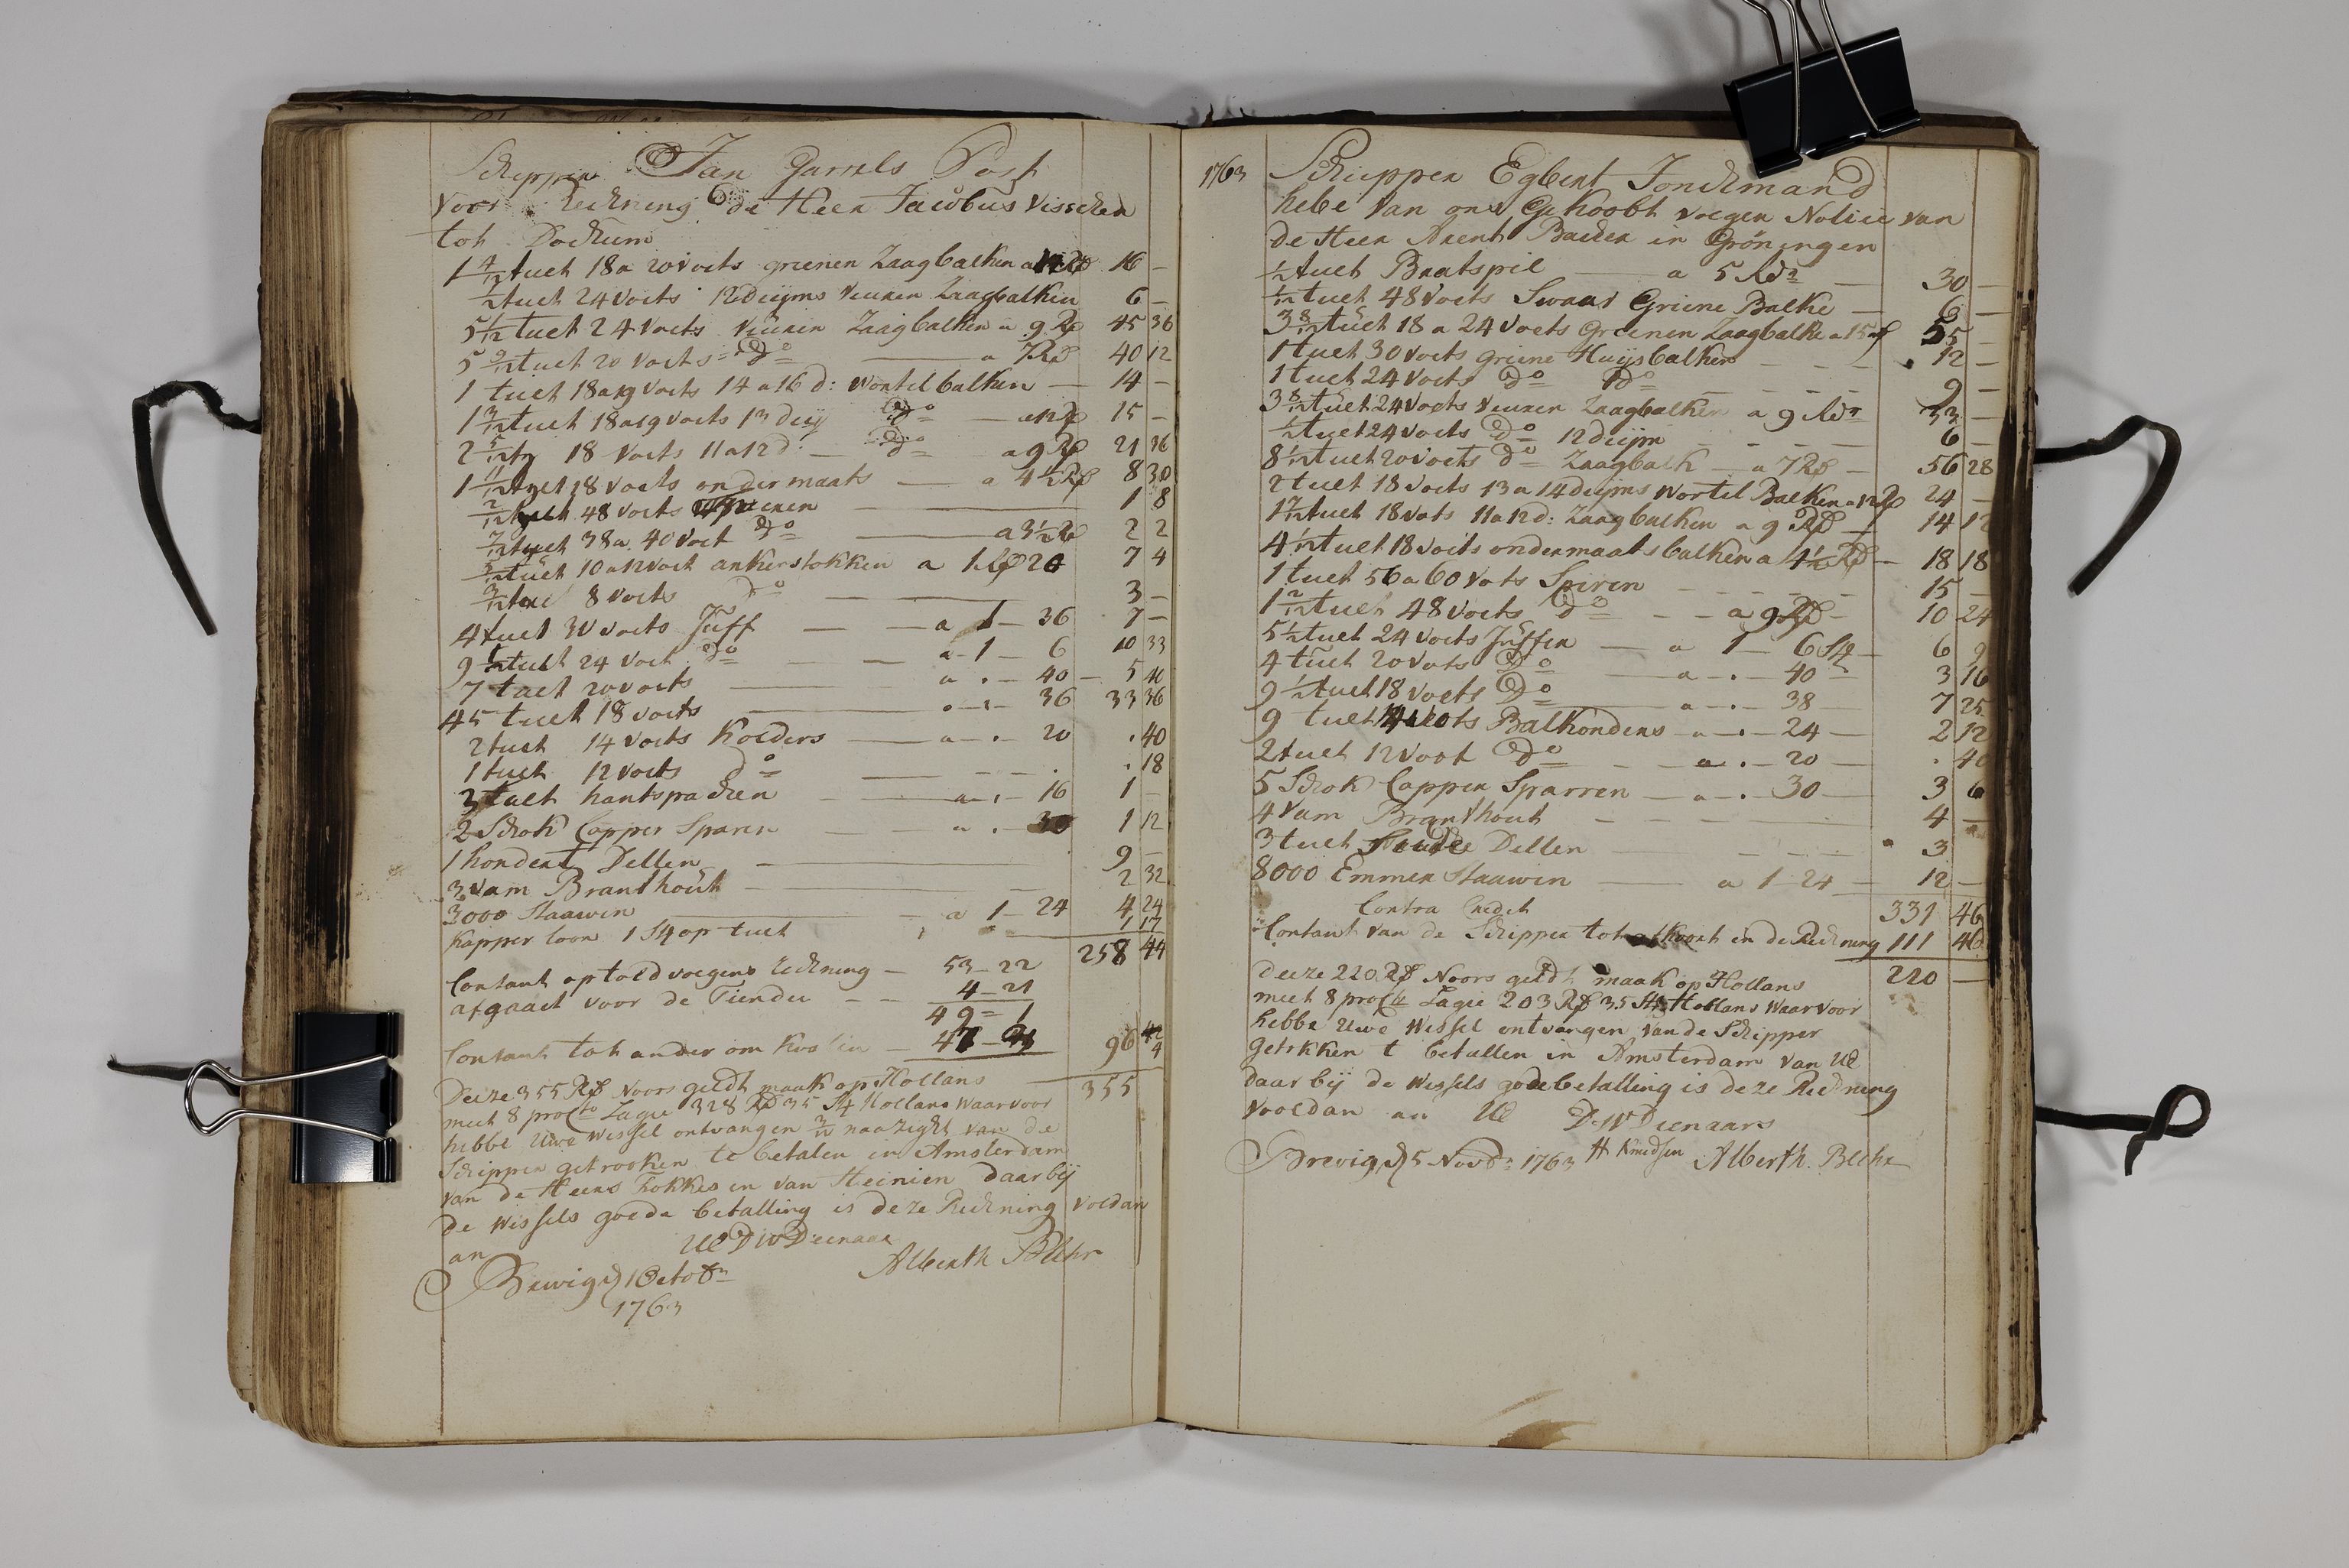 Schipper Jan Garrels Post
voor Rechning de Heer Jacobus Visscher
tot Dockum
1 4/12 tuet 18 a 20 voets grienen Zaagbalken a 12 Rd 16 —
1/2 tuet 24 voets 12 duijms veuren Zaagbalken 6 —
5 1/12 tuet 24 voets veuren Zaagbalken a 9 Rd 45 36
5 9/12 tuet 20 voets Do — a 7 Rd 40 12
1 tuet 18 a 19 voets 14 a 16 d: wortelbalken — 14 —
1 3/12 tuet 18 a 19 voets 13 duij Do — a 12 Rd 15 —
2 5/12 tu 18 voets 11 a 12 d: — do — a 9 Rd 21 36
1 11/12 tuet 18 voets ondermaats — a 4 1/2 Rd 8 30
2/12 tuet 48 voets 1 8
7/12 tuet 38 a 40 voet Do — a 3 1/2 Rd 2 2
5/12 tuet 10 a 12 voet ankerstokken a 1 Rd 20 7 4
3/12 tuet 8 voets do — 3 —
4 tuet 30 voets Juff — a 1 — 36 7 —
9 1/2 tuet 24 voet do — a 1 — 6 10 33
7 tuet 20 voets — a . — 40 — 5 40
45 tuet 18 voets — . — 36 33 36
2 tuet 14 voets Kolders — a . — 20 . 40
1 tuet 12 voets do — . 18
3 tuet hantspacken — a . — 16 1 —
2 Schok Capper Sparen — a . — 30 1 12
1 hondert Dellen — 9 —
3 vam Branthout — 2 32
3000 Staawen — a 1 — 24 4 24
Kapper loon 1 St op tuet 1 17
258 44
Contant optold voegens rechning — 53 — 22
afgaaet voor de Tiende — 4 — 21
49 = 1
Contant tot ander om kosten — 47 96 4
Deeze 355 Rd Noors geldt maak op Hollans 355
meet 8 proCto Lagie 328 Rd 35 St Hollans waarvoor
hebbe Uwe wissel ontvangen naa Zight van de
Schipper getrocken te betalen in Amsterdam
van de Heers Hokkes en van Heinien daar bij
de wissels goede betalling is deze Rechning voldan
an UE DW Deenaar
Brewig d 1 Octobr Alberth Blehr
1763
1763 Schipper Egbert Jonckmand
hebe van ons Gekoobt voegen Notiie van
de Heer Arent Backer in Gröningen
1/2 tuet Braatspil — a 5 Rdr — 30 —
1/12 tuet 48 voets Swaar Griene Balke — 6 —
3 8/12 tuet 18 a 24 voets Grienen Zaagbalke a 15 rd 55 —
1 tuet 30 voets griene Huijsbalken — 12 —
1 tuet 24 voets do do — 9 —
3 8/12 tuet 24 voets veuren Zaagbalken a 9 Rdr 33 —
1/2 tuet 24 voets Do 12 duijm — 6 —
8 1/12 tuet 20 voets do Zaagbalk — a 7 Rd — 56 28
2 tuet 18 voets 13 a 14 duijms wortel Balken a 12 Rd 24 —
1 7/12 tuet 18 vots 11 a 12 d: Zaagbalken a 9 Rd — 14 12
4 1/12 tuet 18 voets ondermaats balken a 4 1/2 Rd — 18 18
1 tuet 56 a 60 vots Spiren — 15 —
1 2/12 tuet 48 voets do — a 9 Rd — 10 24
5 1/2 tuet 24 voets Juffen — a 1 — 6 St — 6 9
4 tuet 20 vots Do — a . — 40 — 3 16
9 1/2 tuet 18 voets Do — a . — 38 7 25
9 tuet 14 vots Balkonders — a . — 24 — 2 12
2 tuet 12 voot do — a . — 20 — . 40
5 Schok Capper Sparren — a — . 30 — 3 6
4 vam Branthout — 4 —
3 tuet Dellen — 3
8000 Emmer Staawen — a 1 24 — 12 —
Contra Credit 331 46
Contant van de Schipper tot in de Rechning 111 46
220 —
Deeze 220 Rd Noors geldt maak op Hollans
meet 8 proCto Lagie 203 Rd 35 St Hollans waarvoor
hebbe Uwe wissel ontvangen van de Schipper
getrkken t betallen in Amsterdam van UE
daar bij de wissels godebetalling is deze Rechning
vooldan an UE DW Deenaars
Brevig d 5 Novbr 1763 H Knudsen Alberth. Blehr